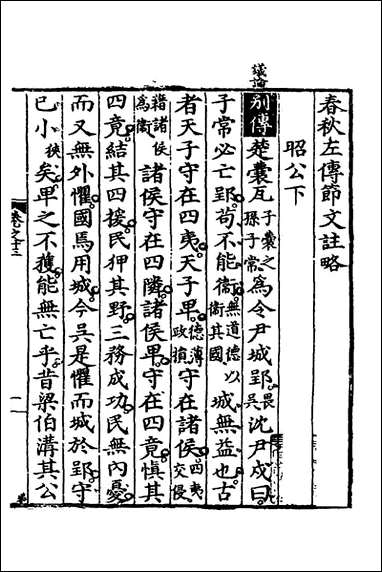 春秋左傳節文註略
昭公下
議論
別傳 楚囊瓦子囊之孫子常爲令尹城郢畏吳沈尹戍曰
子常必亡郢苟不能衛無道德以衛其國城無益也古
者天子守在四夷天子卑德薄政損守在諸侯四夷交侵
藉諸侯爲衛諸侯守在四隣諸侯卑守在四竟愼其
四竟結其四援民狎其野三務成功民無內憂
而又無外懼國焉用城今吳是懼而城於郢守
已小狹矣卑之不獲能無亡乎昔梁伯溝其公
卷之十三
一